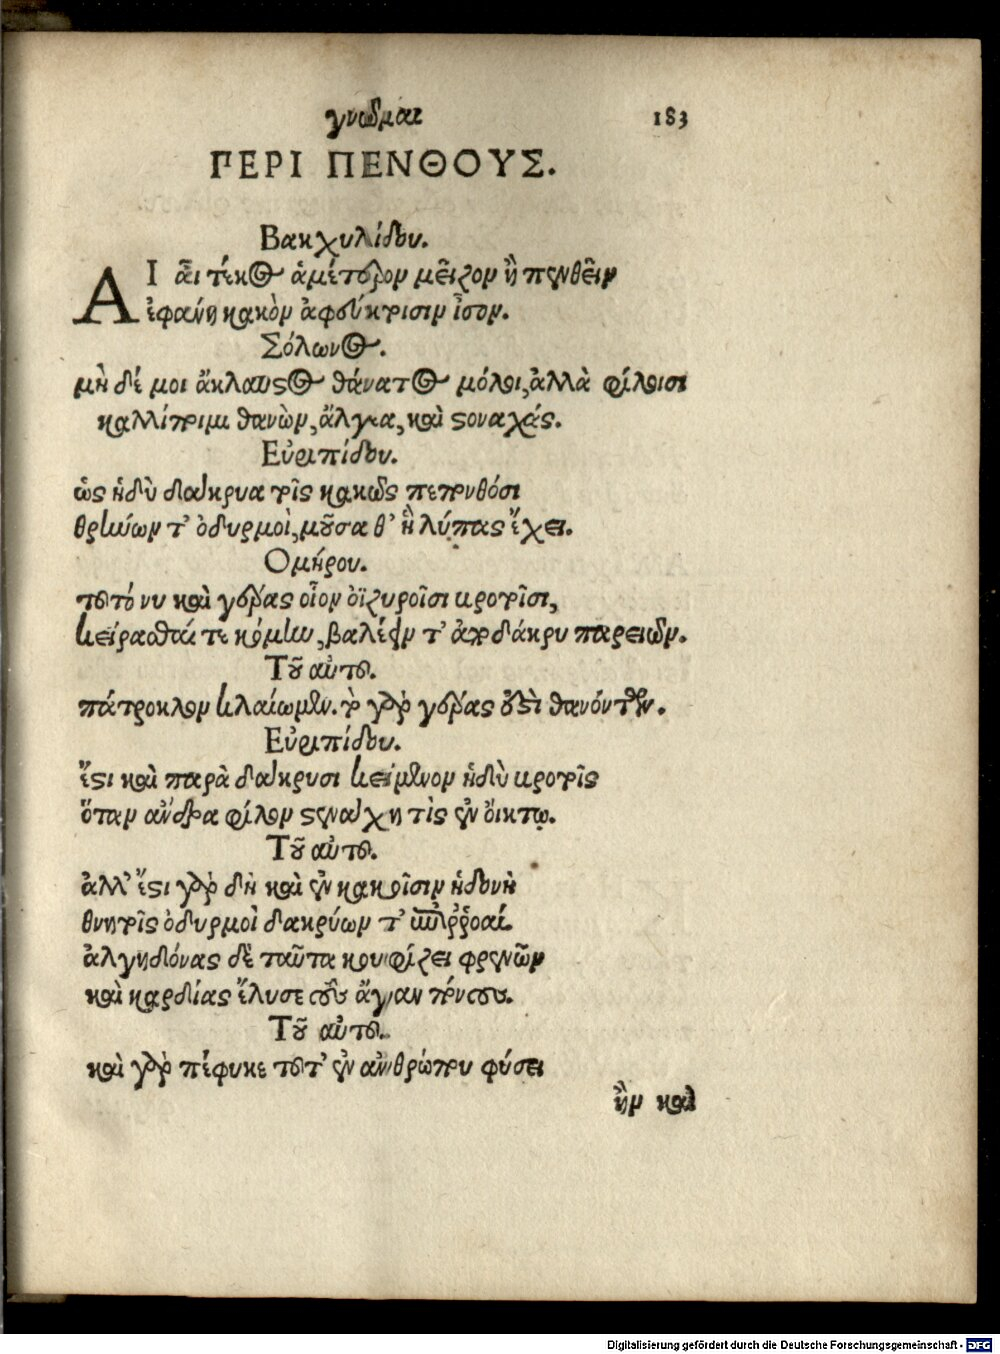 γνῶμαι 183
ΠΕΡΙ ΠΕΝΘΟΥΣ.
Βακχυλίδου.
ΑΙ αἶ τέκος ἁμέτερον μεῖζον ἢ πενθεῖν
ἐφάνη κακὸν ἀφθέγκτοισιν ἶσον.
Σόλωνος.
μὴ δέ μοι ἄκλαυστος θάνατος μόλοι, ἀλλὰ φίλοισι
καλλίποιμι θανὼν, ἄλγεα, καὶ στοναχάς.
Εὐριπίδου.
ὡς ἡδὺ δάκρυα τοῖς κακῶς πεπονθόσι
θρήνων τ' ὀδυρμοὶ, μοῦσα θ' ἣ λύπας ἔχει.
Ομήρου.
τοῦτό νυ καὶ γέρας οἶον ὀϊζυροῖσι βροτοῖσι,
κείρασθαί τε κόμην, βαλέειν τ' ἀπὸ δάκρυ παρειῶν.
Τοῦ αὐτοῦ.
πάτροκλον κλαίωμεν. ὃ γὰρ γέρας ἐστὶ θανόντων.
Εὐριπίδου.
ἔστι καὶ παρὰ δάκρυσι κείμενον ἡδὺ βροτοῖς
ὅταν ἄνδρα φίλον στενάχῃ τὶς ἐν οἴκτῳ.
Τοῦ αὐτοῦ.
ἀλλ' ἔστι γὰρ δὴ καὶ ἐν κακοῖσιν ἡδονὴ
θνητοῖς ὀδυρμοὶ δακρύων τ' ἐπιῤῥοαί.
ἀλγηδόνας δὲ ταῦτα κουφίζει φρενῶν
καὶ καρδίας ἔλυσε τοὺς ἄγαν πόνους.
Τοῦ αὐτοῦ.
καὶ γὰρ πέφυκε τοῦτ' ἐν ἀνθρώπου φύσει
ἢν καὶ
Digitalisierung gefördert durch die Deutsche Forschungsgemeinschaft - DFG